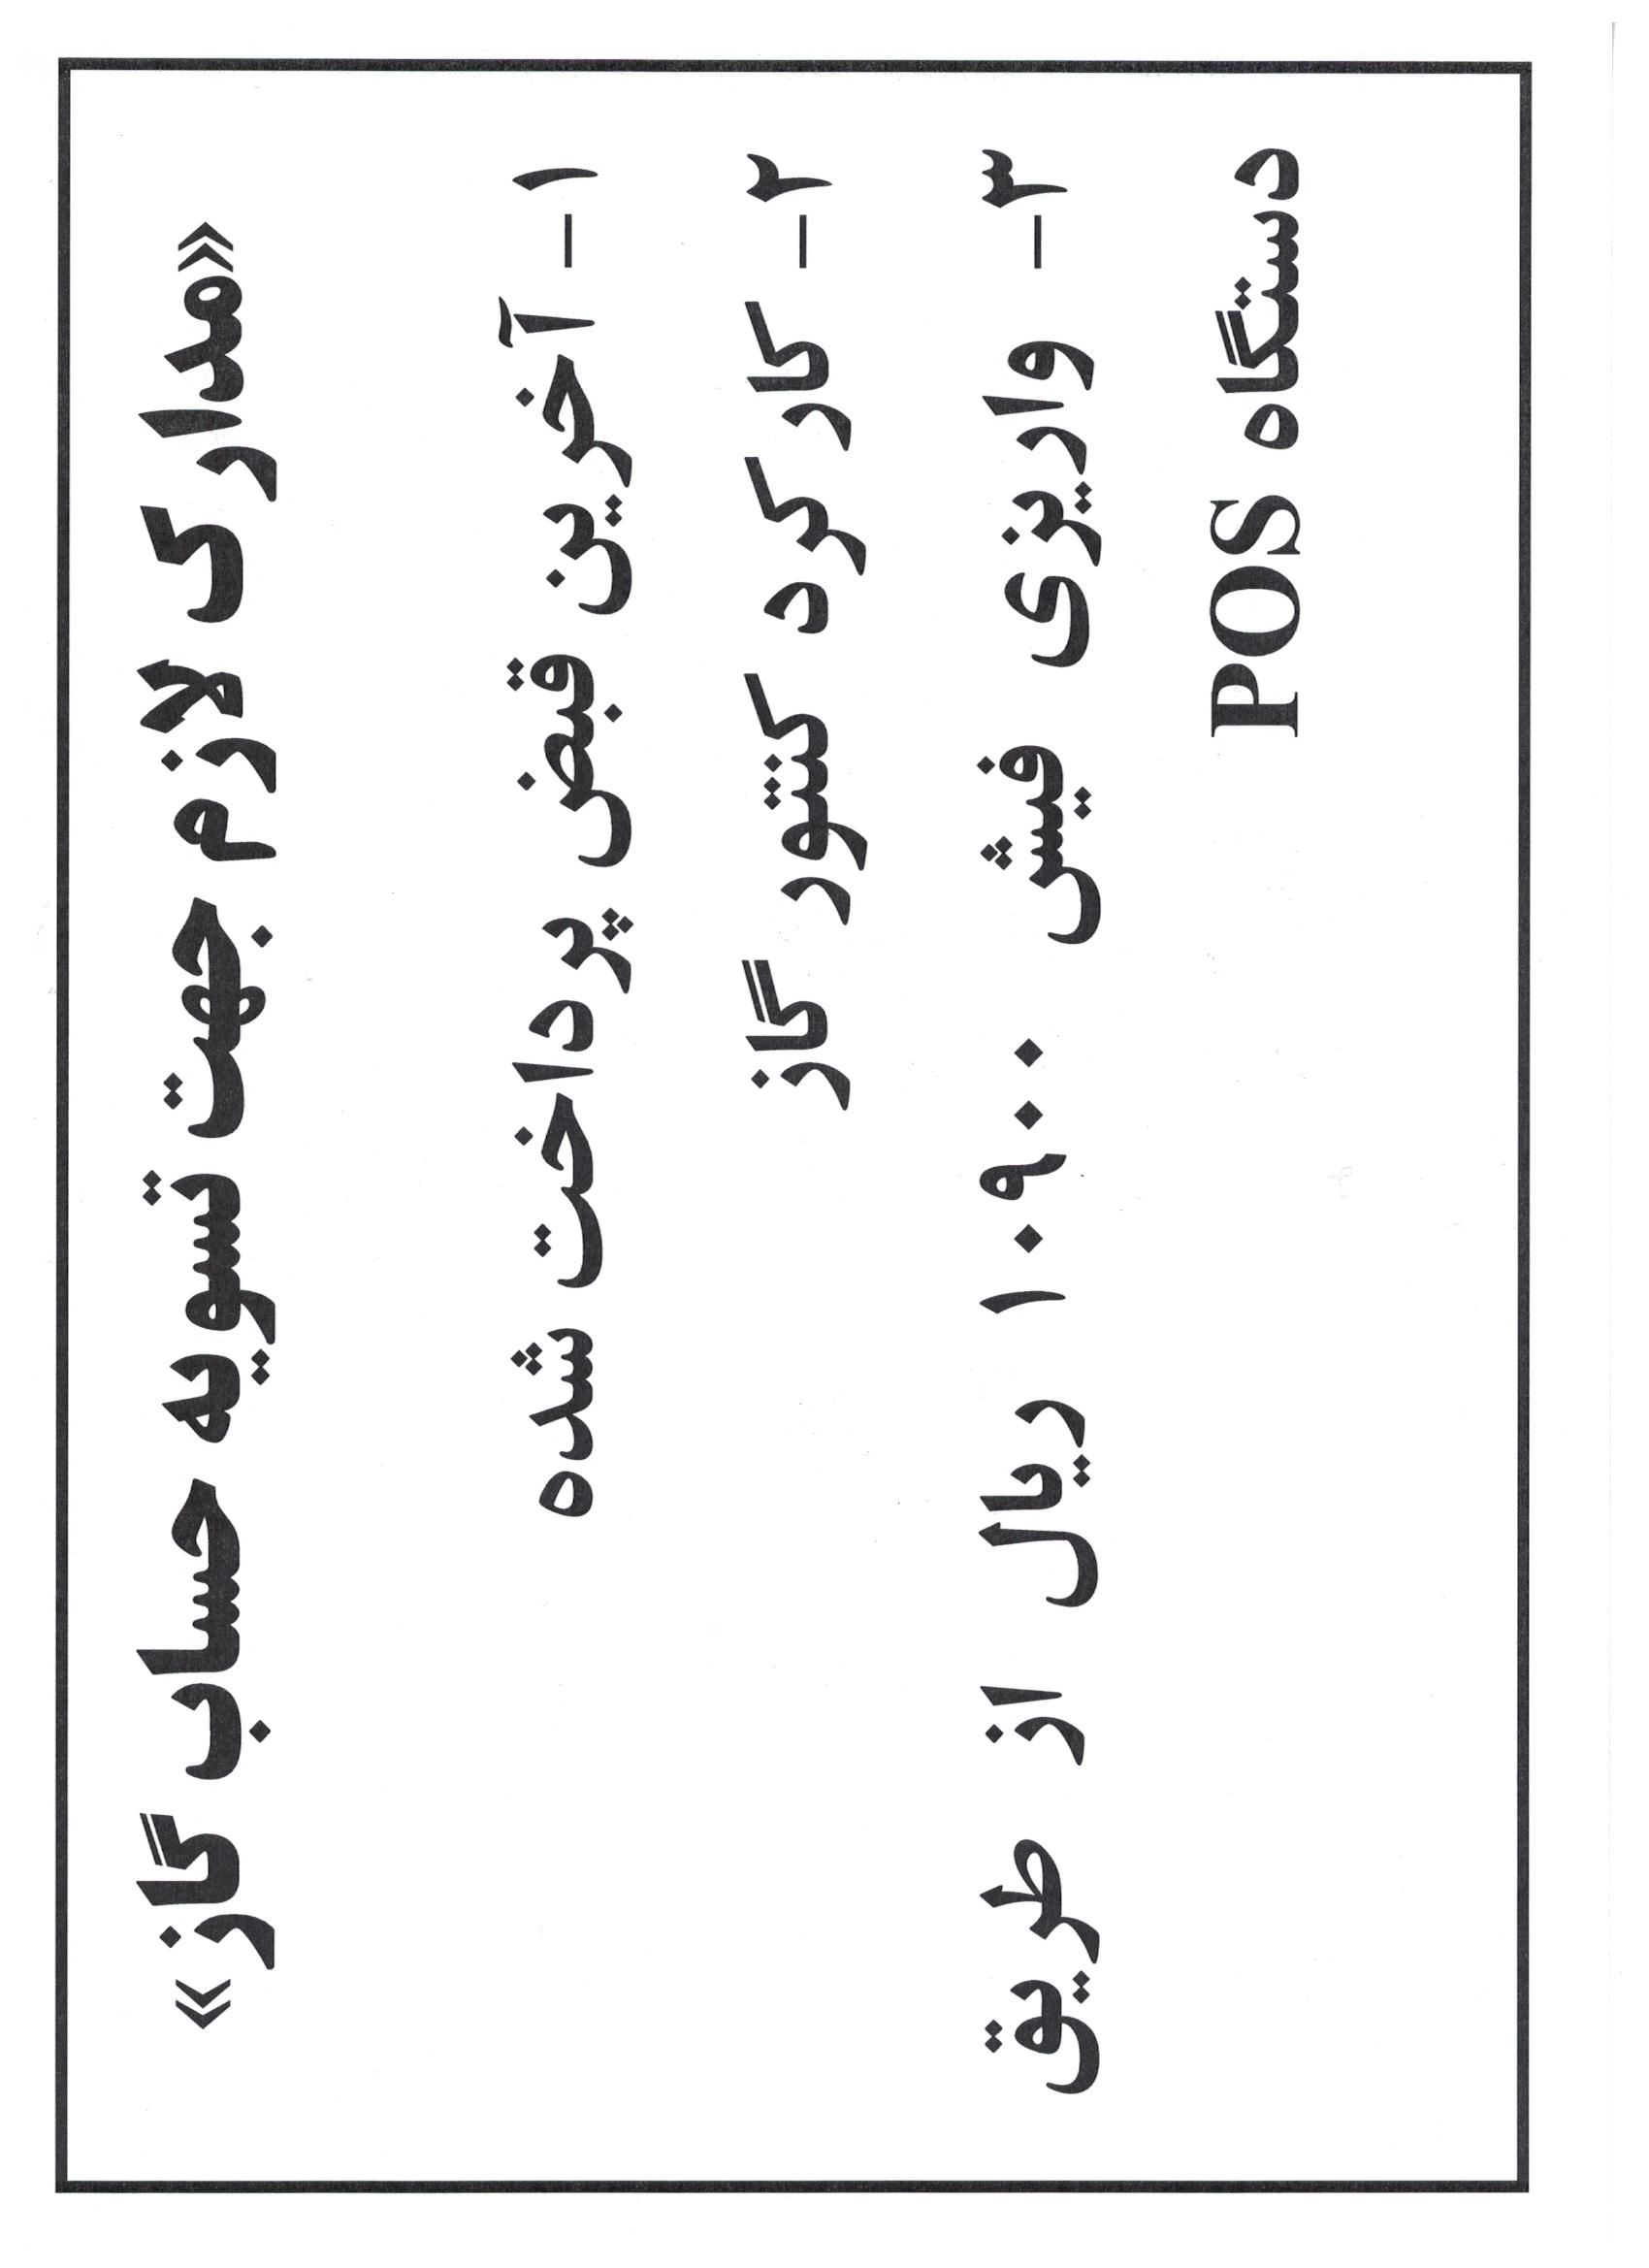 «مدارک لازم جهت تسویه حساب گاز»
۱- آخرین قبض پرداخت شده
۲- کارکرد کنتور گاز
۳- واریزی فیش ۱۰۹۰۰ ریال از طریق
دستگاه POS